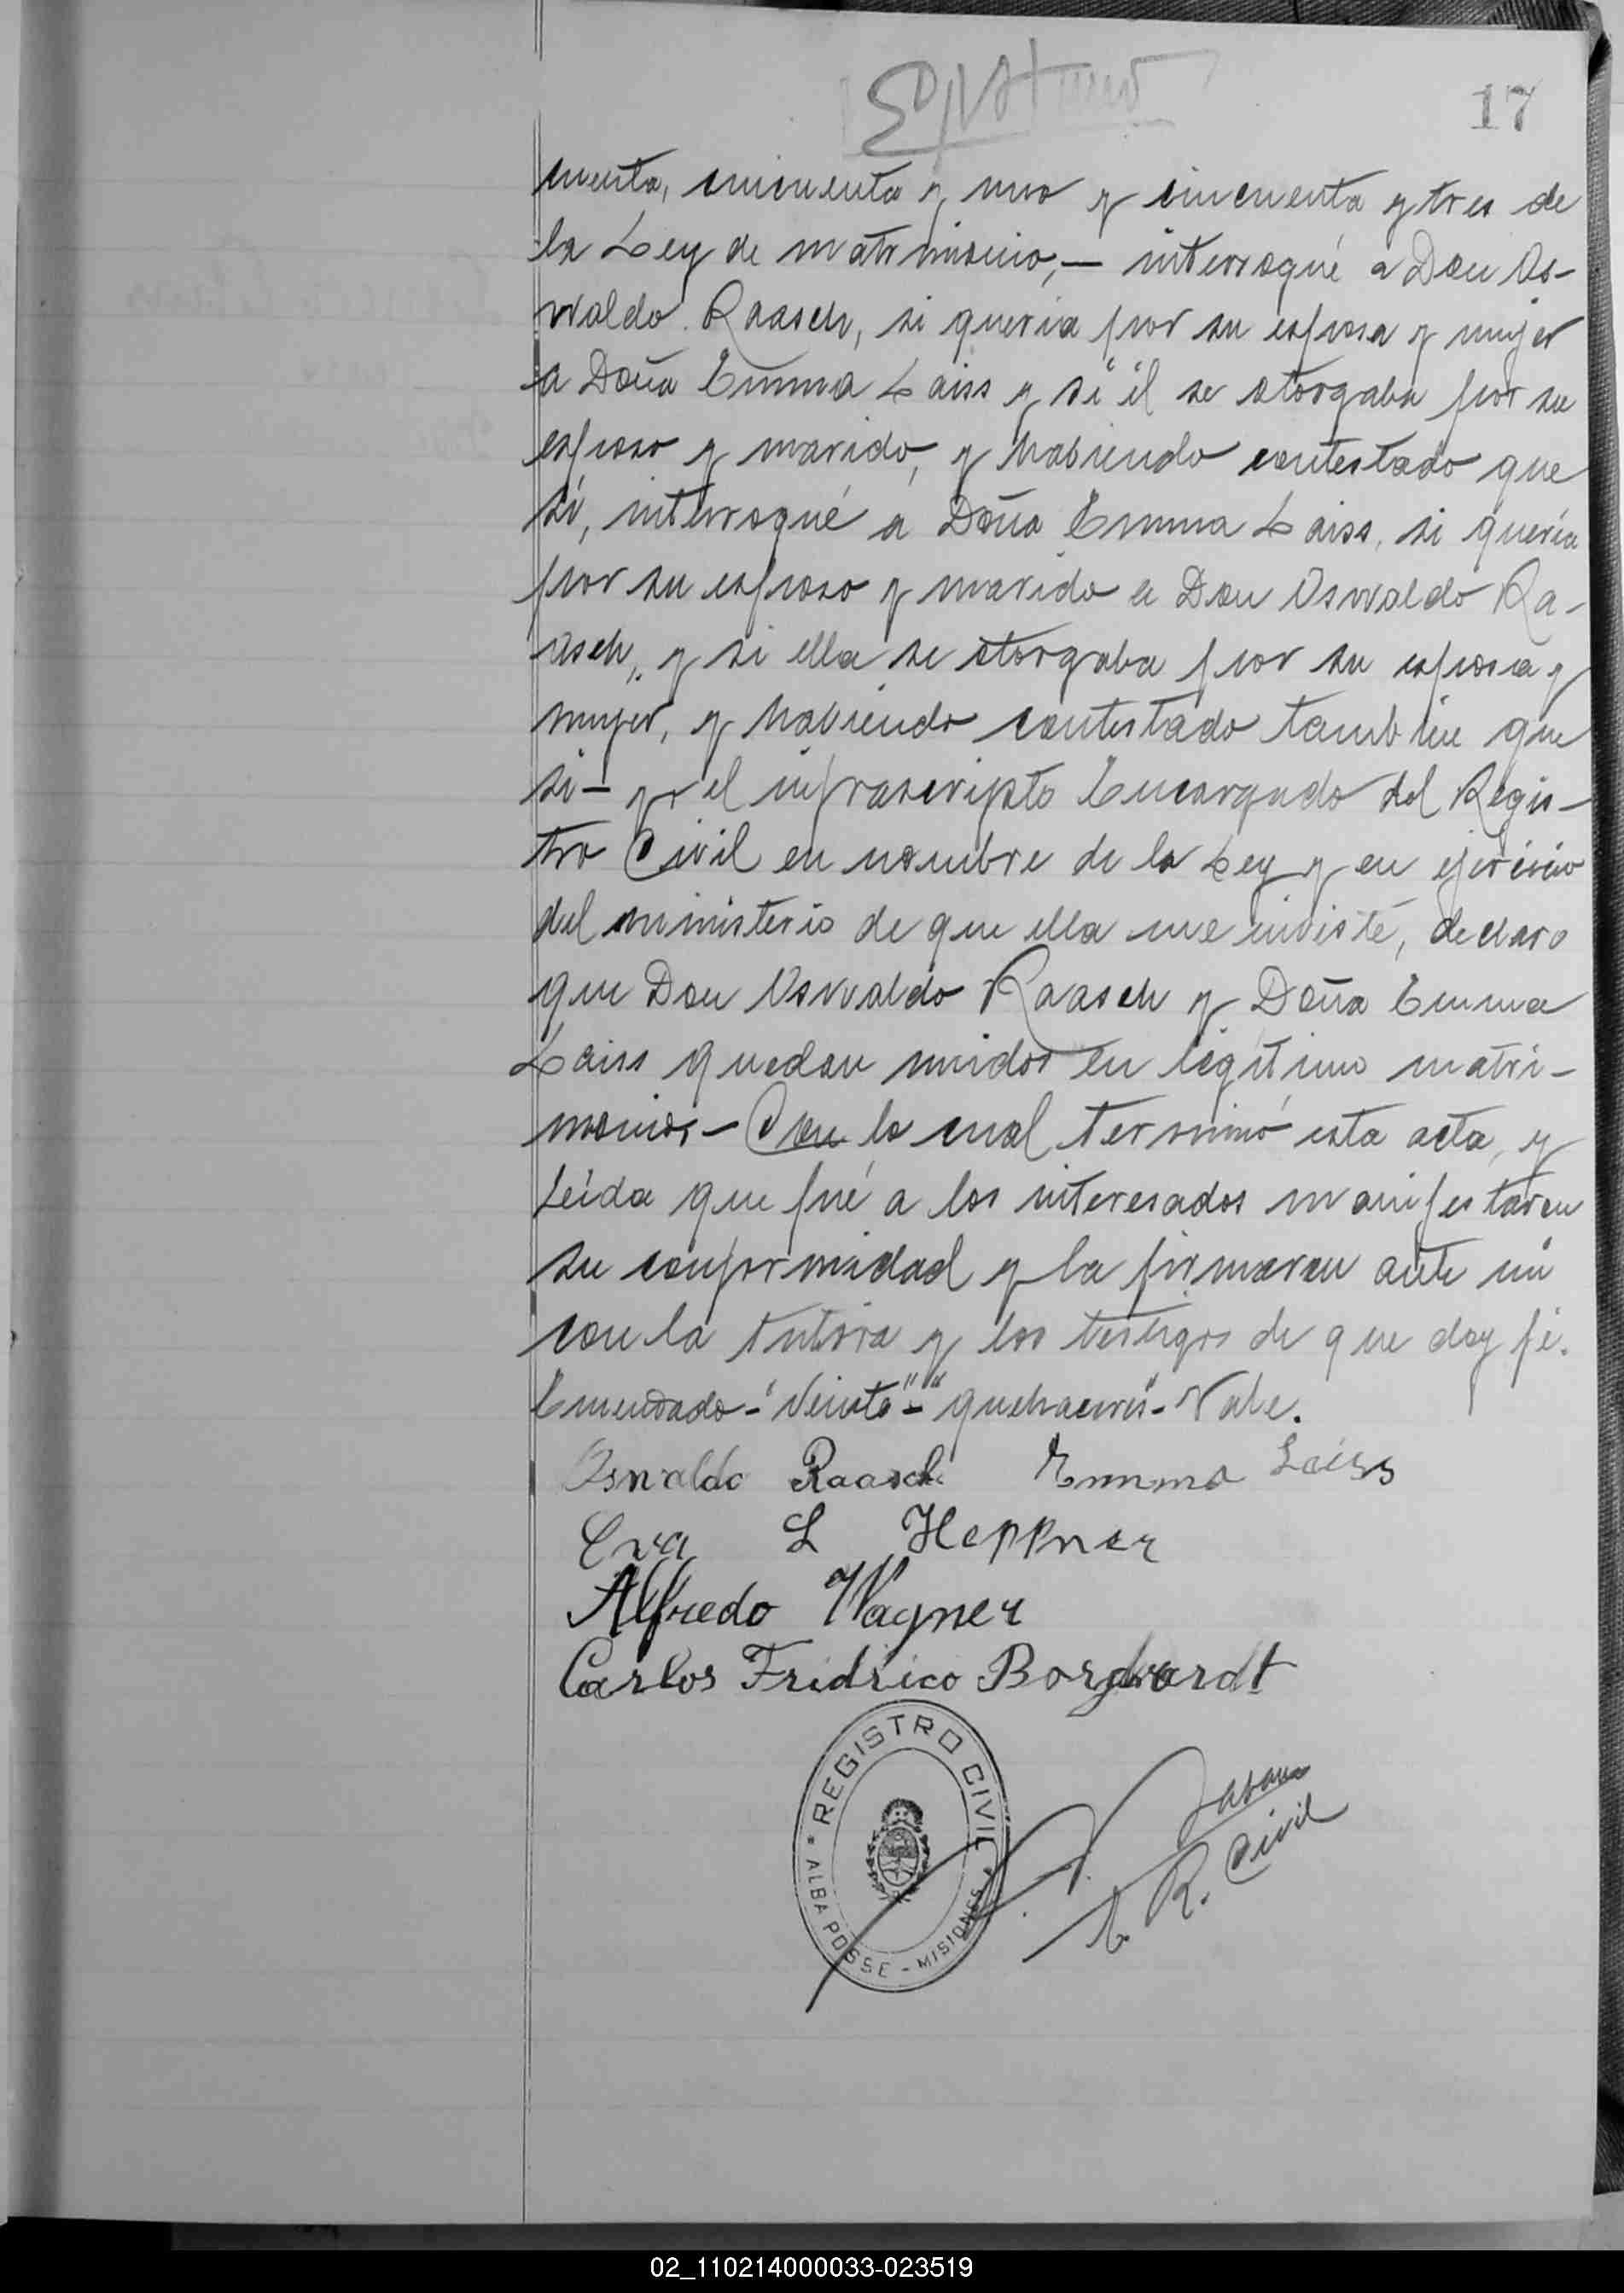 17
cuenta, cincuenta y uno y cincuenta y tres de
la Ley de matrimonio,— interrogué a Don Os-
waldo Raasch, si quería por su esposa y mujer
a Doña Emma Laiss y si él se otorgaba por su
esposo y marido, y habiendo contestado que
sí, interrogué a Doña Emma Laiss, si quería
por su esposo y marido a Don Oswaldo Ra-
asch, y si ella se otorgaba por su esposa y
mujer, y habiendo contestado tambien que
si— yo el infrascripto Encargado del Regis-
tro Civil en nombre de la Ley y en ejercicio
del ministerio de que ella me inviste, declaro
que Don Oswaldo Raasch y Doña Emma
Laiss quedan unidos en legítimo matri-
monio,— Con lo cual terminó esta acta, y
leída que fué a los interesados manifestaron
su conformidad y la firmaron ante mí
con la tutora y los testigos de que doy fé.
Enmendado-"Veinte"-"quehaceres"-Vale.
Oswaldo Raasch Emma Laiss
Eva L Heppner
Alfredo Wagner
Carlos Fridrico Borgwardt
REGISTRO CIVIL
ALBA POSSE - MISIONES
E. R. Civil
02_110214000033-023519